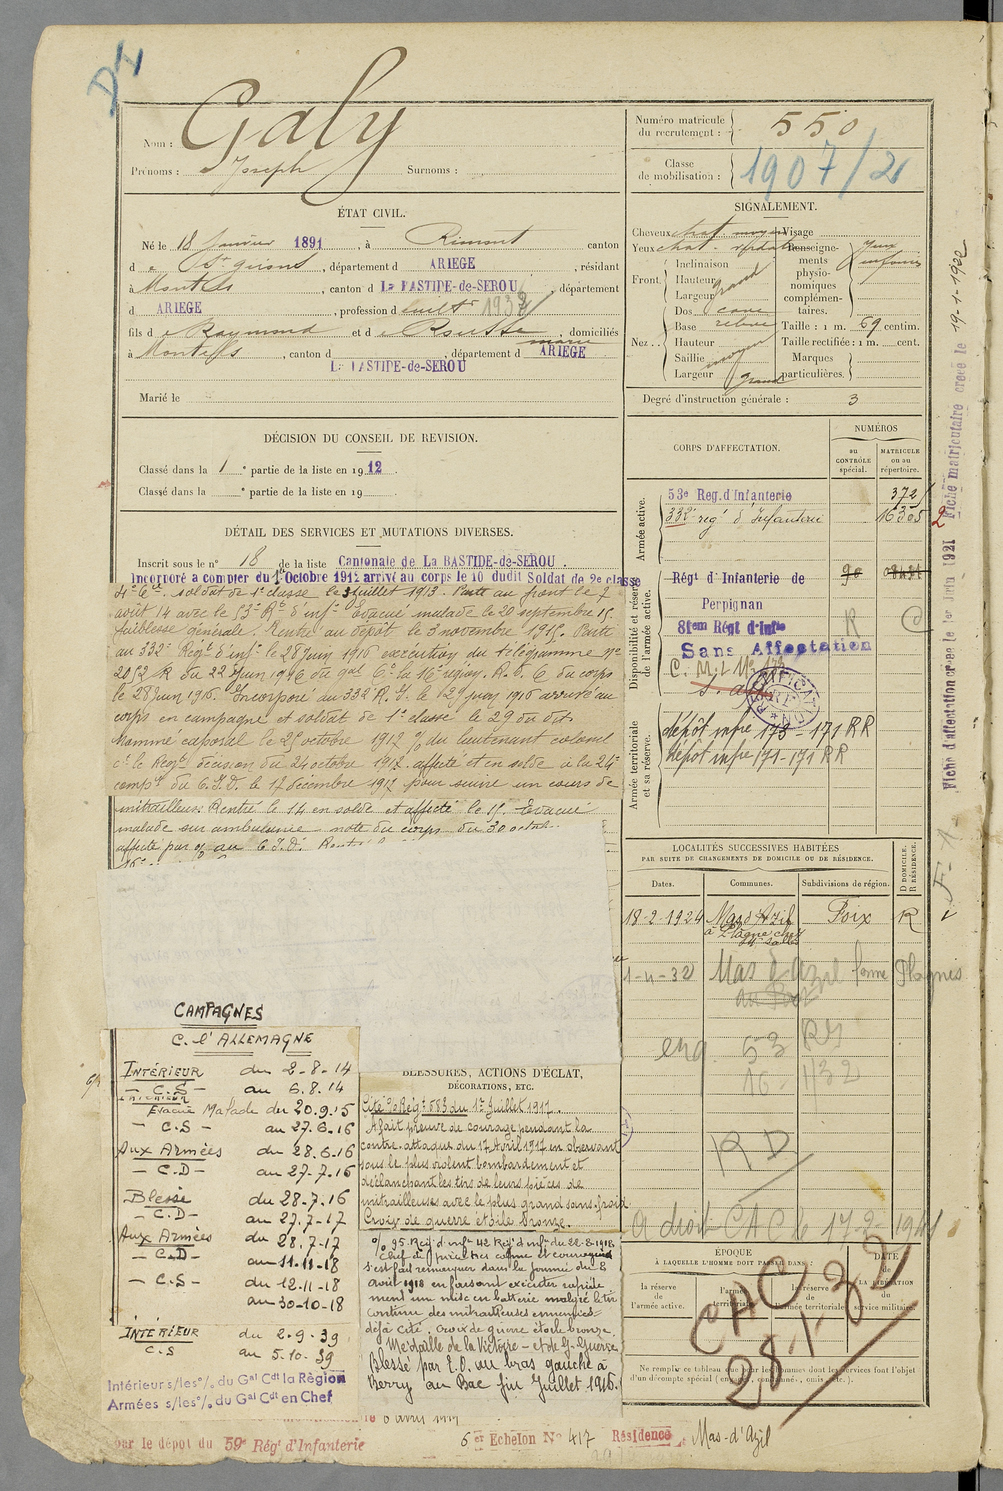 D4
Nom : Galy
Prénoms : Joseph Surnoms :
Numéro matricule du recrutement : 550
Classe de mobilisation : 1907/21
ÉTAT CIVIL.
Né le 18 Janvier 1891, à Rimont canton
d e St Girons, département d ARIEGE, résidant
à Montels, canton d La BASTIDE-de-SEROU, département
d ARIEGE, profession d cultr 1932
fils d e Raymond et d e Rousse Marie, domiciliés
à Montels, canton d La BASTIDE-de-SEROU, département d ARIEGE
Marié le
SIGNALEMENT.
Cheveux chat. moyen Visage
Yeux chat. Renseignements physionomiques complémentaires. Yeux
Front Inclinaison
Hauteur grand
Largeur
Nez Dos cave
Base relevé
Hauteur
Saillie moyen
Largeur grand
Taille : 1 m. 69 centim.
Taille rectifiée : 1 m. cent.
Marques particulières.
Degré d'instruction générale : 3
DÉCISION DU CONSEIL DE REVISION.
Classé dans la 1 e partie de la liste en 1912.
Classé dans la e partie de la liste en 19 .
DÉTAIL DES SERVICES ET MUTATIONS DIVERSES.
Inscrit sous le n° 18 de la liste Cantonale de La BASTIDE-de-SEROU.
Incorporé a compter du 1er Octobre 1912 arrivé au corps le 10 dudit Soldat de 2e classe
soldat de 1e classe le 3 juillet 1913. Parti au front le 7
août 14 avec le 53e Rt d'infie Evacué malade le 20 septembre 15.
faiblesse générale. Rentré au dépôt le 3 novembre 1915. Parti
au 332e Régt d'infie le 28 Juin 1916 exécution du télégramme No
2052 R du 22 Juin 1916 du Gal Ct la 16e région. R. D. C du corps
le 28 Juin 1916. Incorporé au 332 R. I. le 29 juin 1916 arrivé au
corps en campagne et soldat de 1e classe le 29 du dit.
Nommé caporal le 25 octobre 1917 % du lieutenant colonel
ct le Régt décision du 24 octobre 1917. affecté et en solde à la 24e
compe du C.I.D. le 17 décembre 1917 pour suivre un cours de
mitrailleur. Rentré le 14 en solde et affecté le 15. Evacué
malade sur ambulance note du corps du 30 octob.
affecté par % au C.I.D.
CORPS D'AFFECTATION.
NUMÉROS
au CONTRÔLE spécial.
MATRICULE ou au répertoire.
Armée active.
53e Reg. d'Infanterie 372
332e regt d'Infanterie 16305
Disponibilité et réserve de l'armée active.
Régt d'Infanterie de Perpignan
81em Régt d'Infie R C
Sans Affectation
C. M. I. No 173
s. aff
Armée territoriale et sa réserve.
dépôt infie 173 - 171 RR
Dépôt infie 171 - 171 RR
Fiche d'affectation créée le 1er Juin 1921 Fiche matriculaire créée le 19-1-1932
LOCALITÉS SUCCESSIVES HABITÉES
PAR SUITE DE CHANGEMENTS DE DOMICILE OU DE RÉSIDENCE.
D DOMICILE. R RÉSIDENCE.
Dates. Communes. Subdivisions de région.
18-2-1924 Mas d'Azil Foix R
à Plagne chez
Mr Salles
1-4-32 Mas d'Azil ferme Plagnes
enq. 53 RI
16 1132
RD
A droit CAC le 17-2-1941
CAMPAGNES
C. l'ALLEMAGNE
INTÉRIEUR du 2-8-14
- C.S - au 6.8.14
INTÉRIEUR
Evacué Malade du 20.9.15
- C.S - au 27.6-16
Aux Armées du 28.6-16
- C.D - au 27-7-16
Blessé du 28-7.16
- C.D - au 27.7-17
Aux Armées du 28.7-17
- C.D - au 11-11-18
- C.S - du 12-11-18
au 30-10-18
INTÉRIEUR du 2-9-39
C.S au 5.10.39
Intérieur s/les°/. du Gal Cdt la Région
Armées s/les°/. du Gal Cdt en Chef
BLESSURES, ACTIONS D'ÉCLAT,
DÉCORATIONS, ETC.
Cité % Régt 583 du 1er Juillet 1917.
A fait preuve de courage pendant la
contre-attaque du 17 Avril 1917 en observant
sous le plus violent bombardement et
déclanchant les tirs de leurs pièces de
mitrailleuses avec le plus grand sang-froid
Croix de guerre étoile bronze.
% 95 Reg d'infie 42 Regt d'infie du 22-8-1918
Chef de pièce très calme et courageux
s'est fait remarquer dans la journée du 8
août 1918 en faisant exécuter rapide
ment une mise en batterie malgré le tir
continu des mitrailleuses ennemies
déjà cité. Croix de guerre étoile bronze
Médaille de la Victoire - et de Gde Guerre
Blessé par E.O. au bras gauche à
Berry au Bac fin Juillet 1916.
ÉPOQUE
À LAQUELLE L'HOMME DOIT PASSER DANS :
la réserve de l'armée active.
l'armée territoriale.
la réserve de l'armée territoriale
DATE de LA LIBÉRATION du service militaire.
CAC 32
28.1.
Ne remplir ce tableau que pour les hommes dont les services font l'objet
d'un décompte spécial
par le dépôt du 59e Régt d'Infanterie
6 er Echelon No 417 Résidence Mas-d'Azil